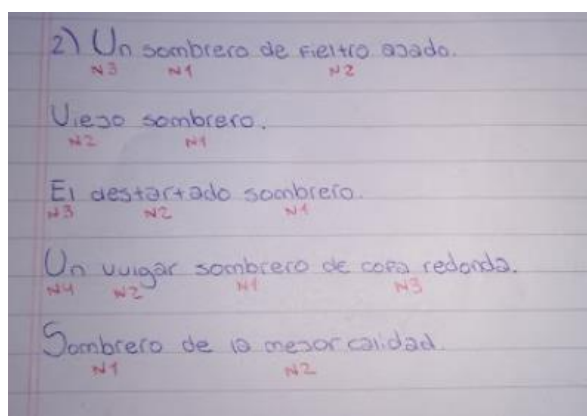 2) Un sombrero de fieltro ajado.
N3 N1 N2
Viejo sombrero.
N2 N1
El destartado sombrero.
N3 N2 N1
Un vulgar sombrero de copa redonda.
N4 N2 N1 N3
Sombrero de la mejor calidad.
N1 N2